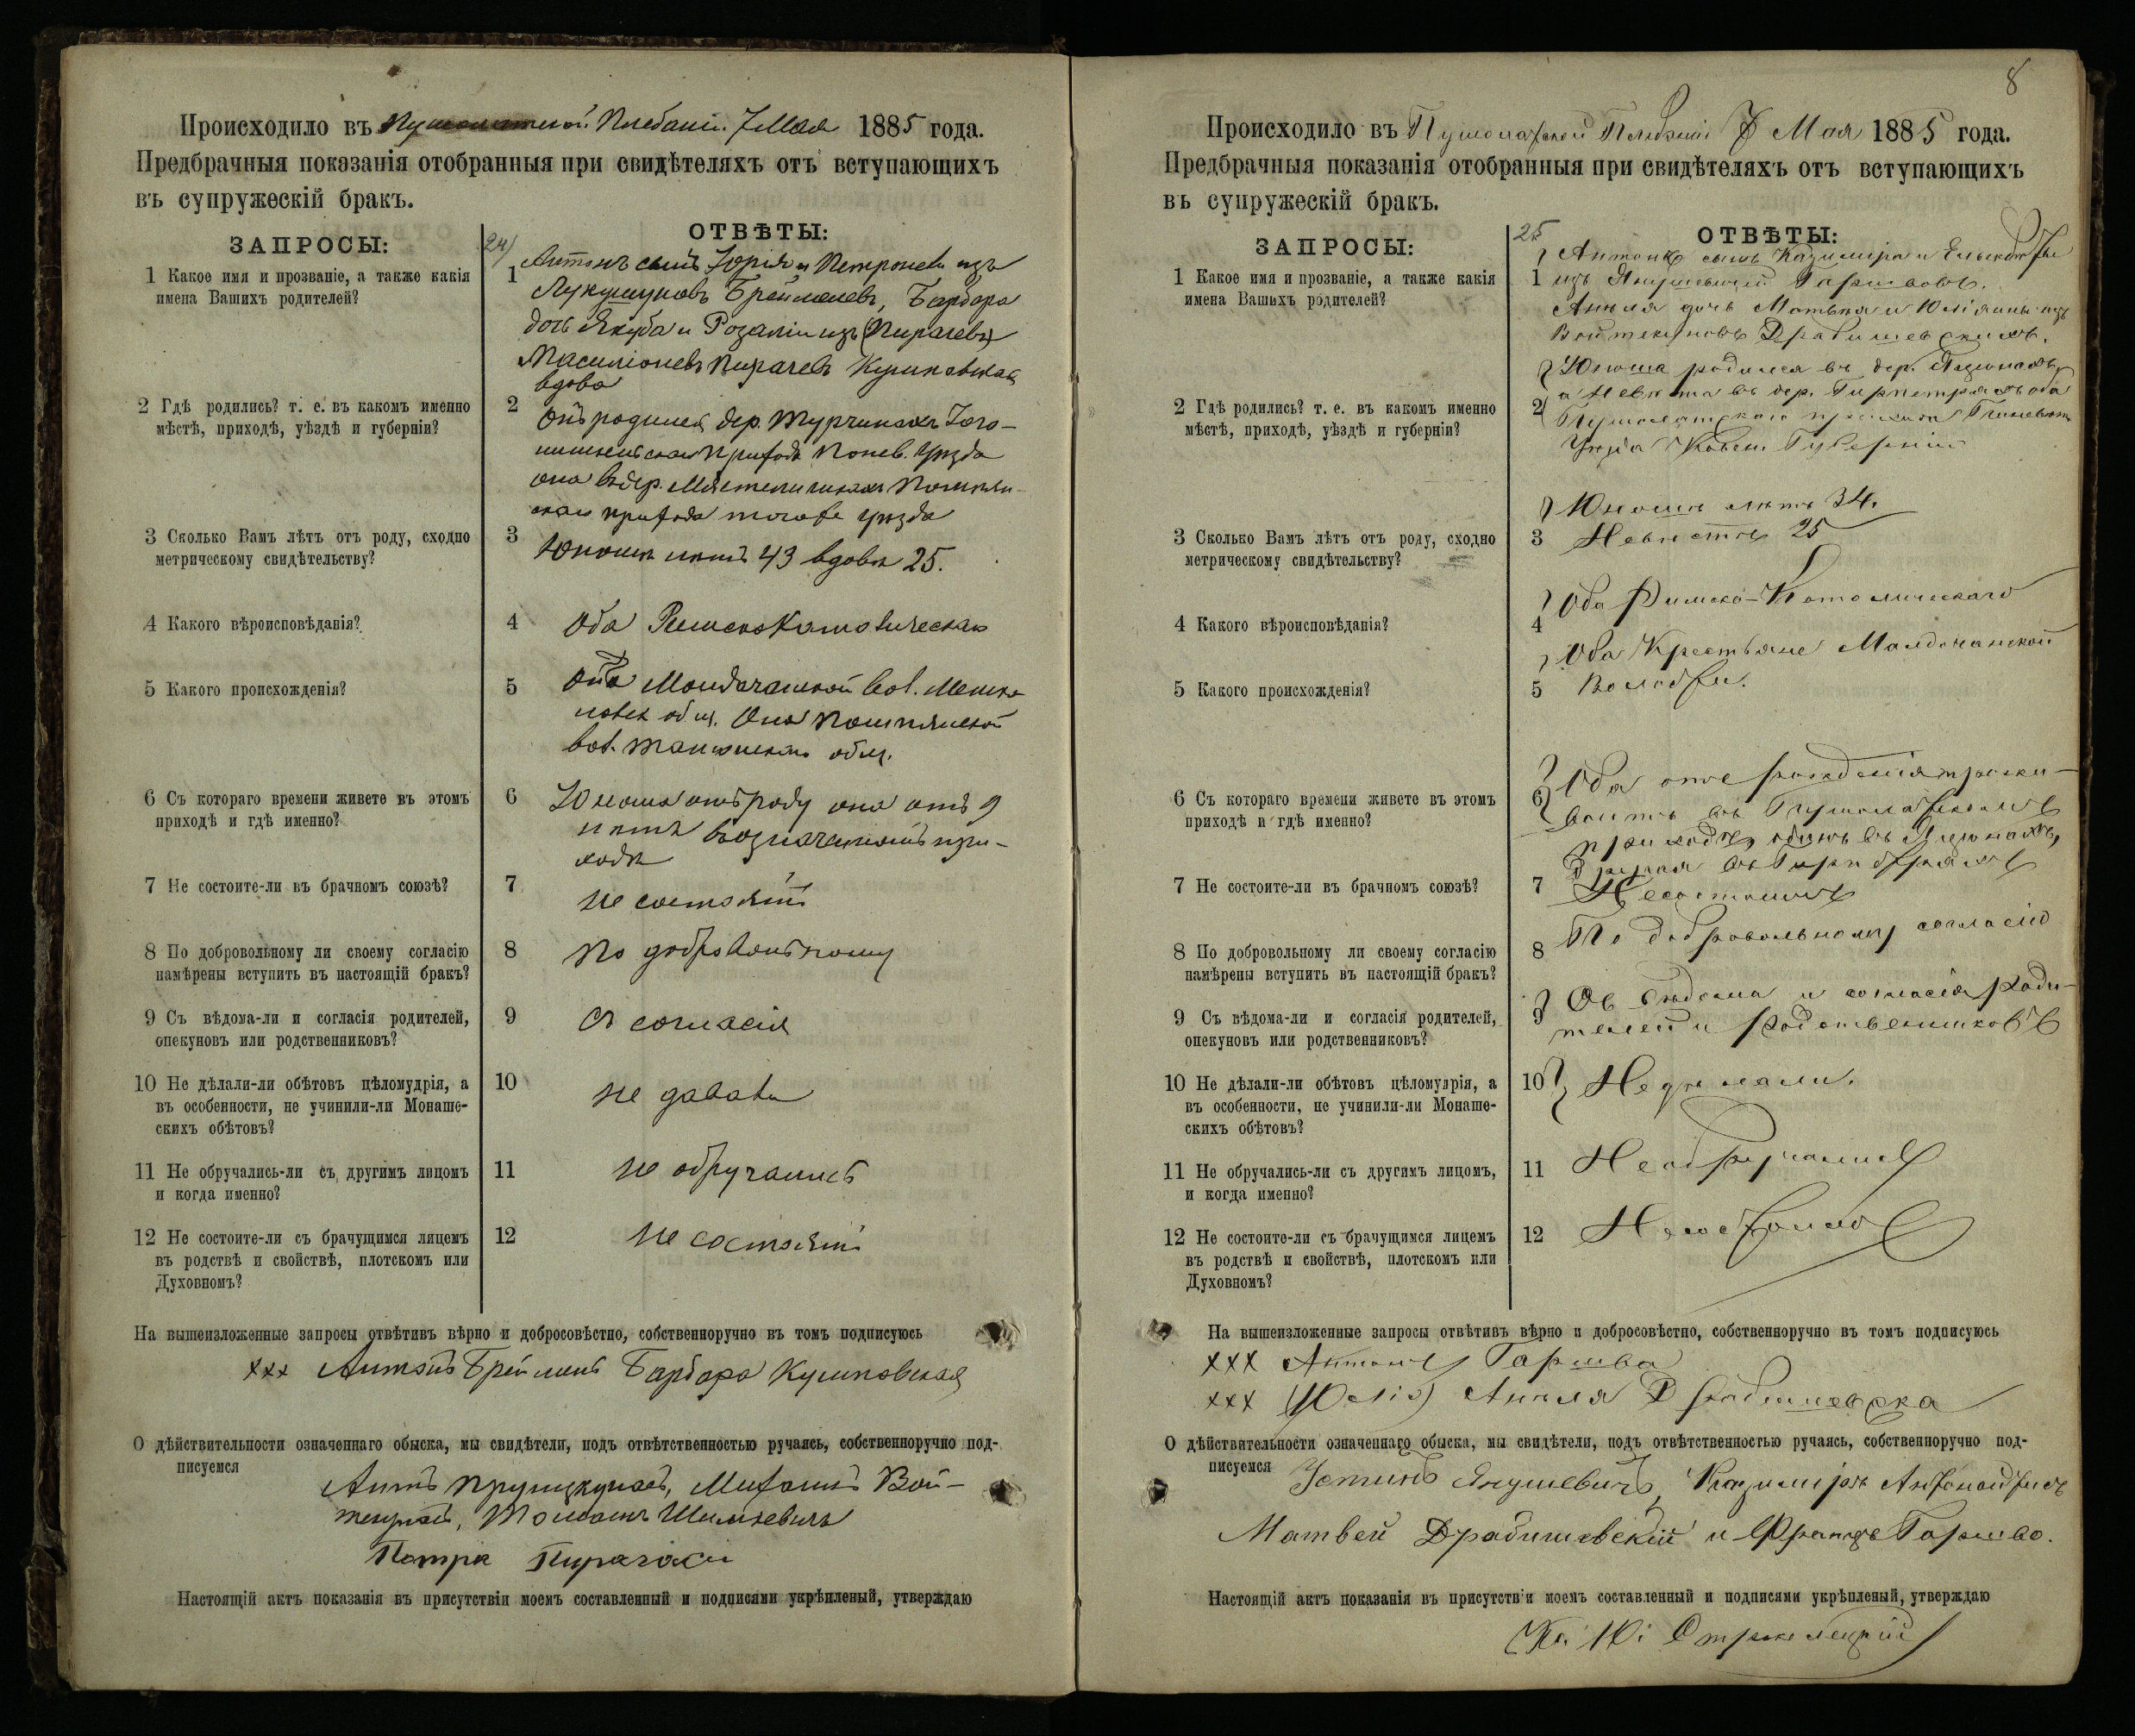 Происходило въ Плебаніи 7 Мая 1885 года.
Предбрачныя показанія отобранныя при свидѣтеляхъ отъ вступающихъ
въ супружескій бракъ.
ЗАПРОСЫ:
24)
ОТВѢТЫ:
1 Какое имя и прозваніе, а также какія
имена Вашихъ родителей?
1 Антонъ сынъ Юрія и Петронели изъ
Барбара
дочь Якуба и Розаліи изъ
вдова
2 Гдѣ родились? т. е. въ какомъ именно
мѣстѣ, приходѣ, уѣздѣ и губерніи?
2 Онъ родился дер.
прихода Понев. уѣзда
она въ дер.
прихода тогоже уѣзда
3 Сколько Вамъ лѣтъ отъ роду, сходно
метрическому свидѣтельству?
3 Юноша лѣтъ 43 вдова 25.
4 Какого вѣроисповѣданія?
4 Оба Римскокатолическаго
5 Какого происхожденія?
5 вол.
общ. Она
вол. общ.
6 Съ котораго времени живете въ этомъ
приходѣ и гдѣ именно?
6 Юноша отъ роду она отъ 9
лѣтъ въ означенномъ при-
ходѣ
7 Не состоите-ли въ брачномъ союзѣ?
7 Не состоятъ
8 По добровольному ли своему согласію
намѣрены вступить въ настоящій бракъ?
8 По добровольному
9 Съ вѣдома-ли и согласія родителей,
опекуновъ или родственниковъ?
9 Съ согласія
10 Не дѣлали-ли обѣтовъ цѣломудрія, а
въ особенности, не учинили-ли Монаше-
скихъ обѣтовъ?
10 Не давали
11 Не обручались-ли съ другимъ лицомъ
и когда именно?
11 Не обручались
12 Не состоите-ли съ брачущимся лицемъ
въ родствѣ и свойствѣ, плотскомъ или
Духовномъ?
12 Не состоятъ
На вышеизложенные запросы отвѣтивъ вѣрно и добросовѣстно, собственноручно въ томъ подписуюсь
ххх Антонъ Барбара
О дѣйствительности означеннаго обыска, мы свидѣтели, подъ отвѣтственностью ручаясь, собственноручно под-
писуемся
Вой-
Настоящій актъ показанія въ присутствіи моемъ составленный и подписями укрѣпленый, утверждаю
8
Происходило въ 7 Мая 1885 года.
Предбрачныя показанія отобранныя при свидѣтеляхъ отъ вступающихъ
въ супружескій бракъ.
ЗАПРОСЫ:
25
ОТВѢТЫ:
1 Какое имя и прозваніе, а также какія
имена Вашихъ родителей?
Антонъ сынъ Казимира и
1 изъ Гаршвовъ.
Анеля дочь и Юліянны изъ
2 Гдѣ родились? т. е. въ какомъ именно
мѣстѣ, приходѣ, уѣздѣ и губерніи?
Юноша родился въ дер.
а Невѣста въ дер. оба
2 прихода
Уѣзда Ковен. Губерніи
3 Сколько Вамъ лѣтъ отъ роду, сходно
метрическому свидѣтельству?
Юноша лѣтъ 34.
3 Невѣста 25
4 Какого вѣроисповѣданія?
4 Оба Римско-Католическаго
5 Какого происхожденія?
Оба Крестьяне
5 Волости.
6 Съ котораго времени живете въ этомъ
приходѣ и гдѣ именно?
6 Оба отъ рожденія прожи-
ваютъ въ
приходѣ, одинъ въ
другая въ
7 Не состоите-ли въ брачномъ союзѣ?
7 Несостоимъ
8 По добровольному ли своему согласію
намѣрены вступить въ настоящій бракъ?
8 По добровольному согласію
9 Съ вѣдома-ли и согласія родителей,
опекуновъ или родственниковъ?
9 Съ вѣдома и согласія роди-
телей и родственниковъ
10 Не дѣлали-ли обѣтовъ цѣломудрія, а
въ особенности, не учинили-ли Монаше-
скихъ обѣтовъ?
10 Недѣлали.
11 Не обручались-ли съ другимъ лицомъ,
и когда именно?
11 Необручались
12 Не состоите-ли съ брачущимся лицемъ
въ родствѣ и свойствѣ, плотскомъ или
Духовномъ?
12 Несостоимъ
На вышеизложенные запросы отвѣтивъ вѣрно и добросовѣстно, собственноручно въ томъ подписуюсь
ххх Антонъ Гаршва
ххх Анеля
О дѣйствительности означеннаго обыска, мы свидѣтели, подъ отвѣтственностью ручаясь, собственноручно под-
писуемся Устинъ Янушевичъ, Казимиръ
Матвей Драбишевскій и Францъ Гаршво.
Настоящій актъ показанія въ присутствіи моемъ составленный и подписями укрѣпленый, утверждаю